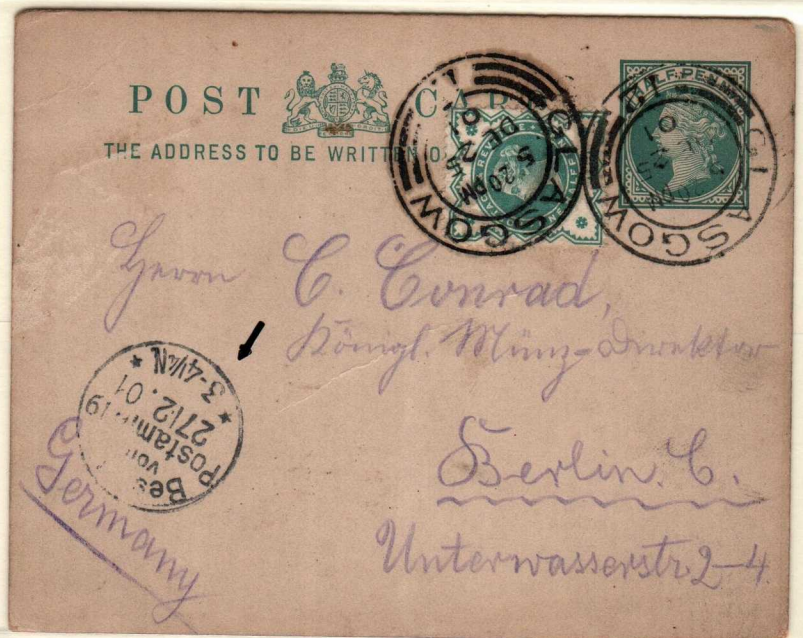 HALFPENNY
POST CARD
THE ADDRESS TO BE WRITTEN O
GLASGOW
5 20 PM
DE 2
01
GLASGOW
01
Herrn C. Conrad,
Königl. Münz-Direktor
Berlin. C.
Unterwasserstr 2-4
Germany
Bes
vom
Postamt 19
27 12. 01
* 3-4¼N *